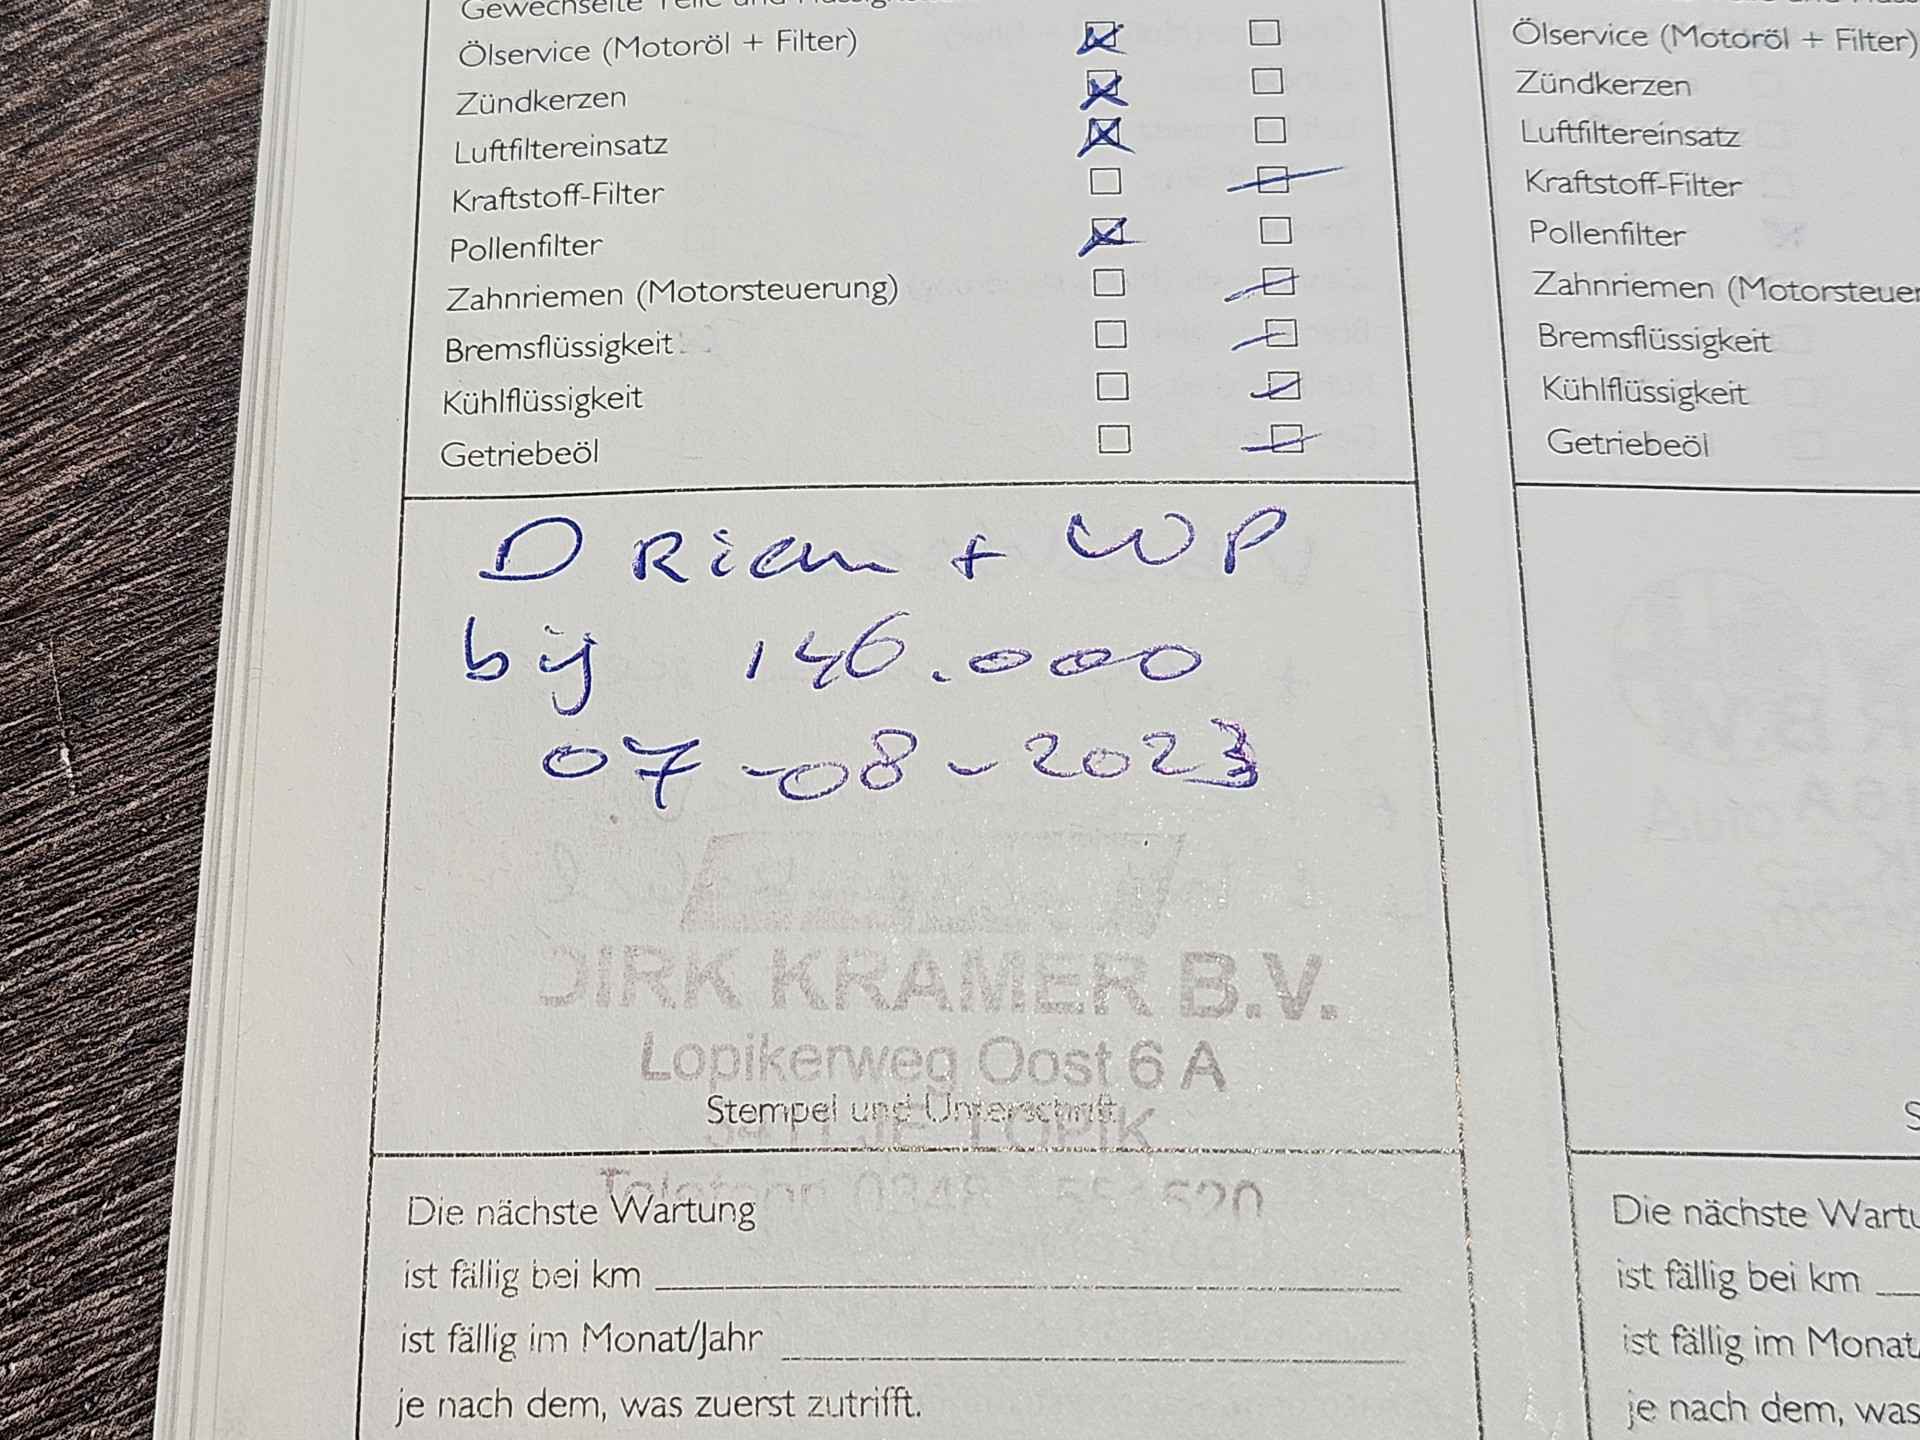 Ölservice (Motoröl + Filter)
Zündkerzen
Luftfiltereinsatz
Kraftstoff-Filter
Pollenfilter
Zahnriemen (Motorsteuerung)
Bremsflüssigkeit
Kühlflüssigkeit
Getriebeöl
D Riem + WP
bij 146.000
07-08-2023
DIRK KRAMER B.V.
Lopikerweg Oost 6 A
Stempel und Unterschrift
LOPIK
Die nächste Wartung
ist fällig bei km
ist fällig im Monat/Jahr
je nach dem, was zuerst zutrifft.
Ölservice (Motoröl + Filter)
Zündkerzen
Luftfiltereinsatz
Kraftstoff-Filter
Pollenfilter
Zahnriemen (Motorsteuer
Bremsflüssigkeit
Kühlflüssigkeit
Getriebeöl
Die nächste Wartu
ist fällig bei km
ist fällig im Monat
je nach dem, was